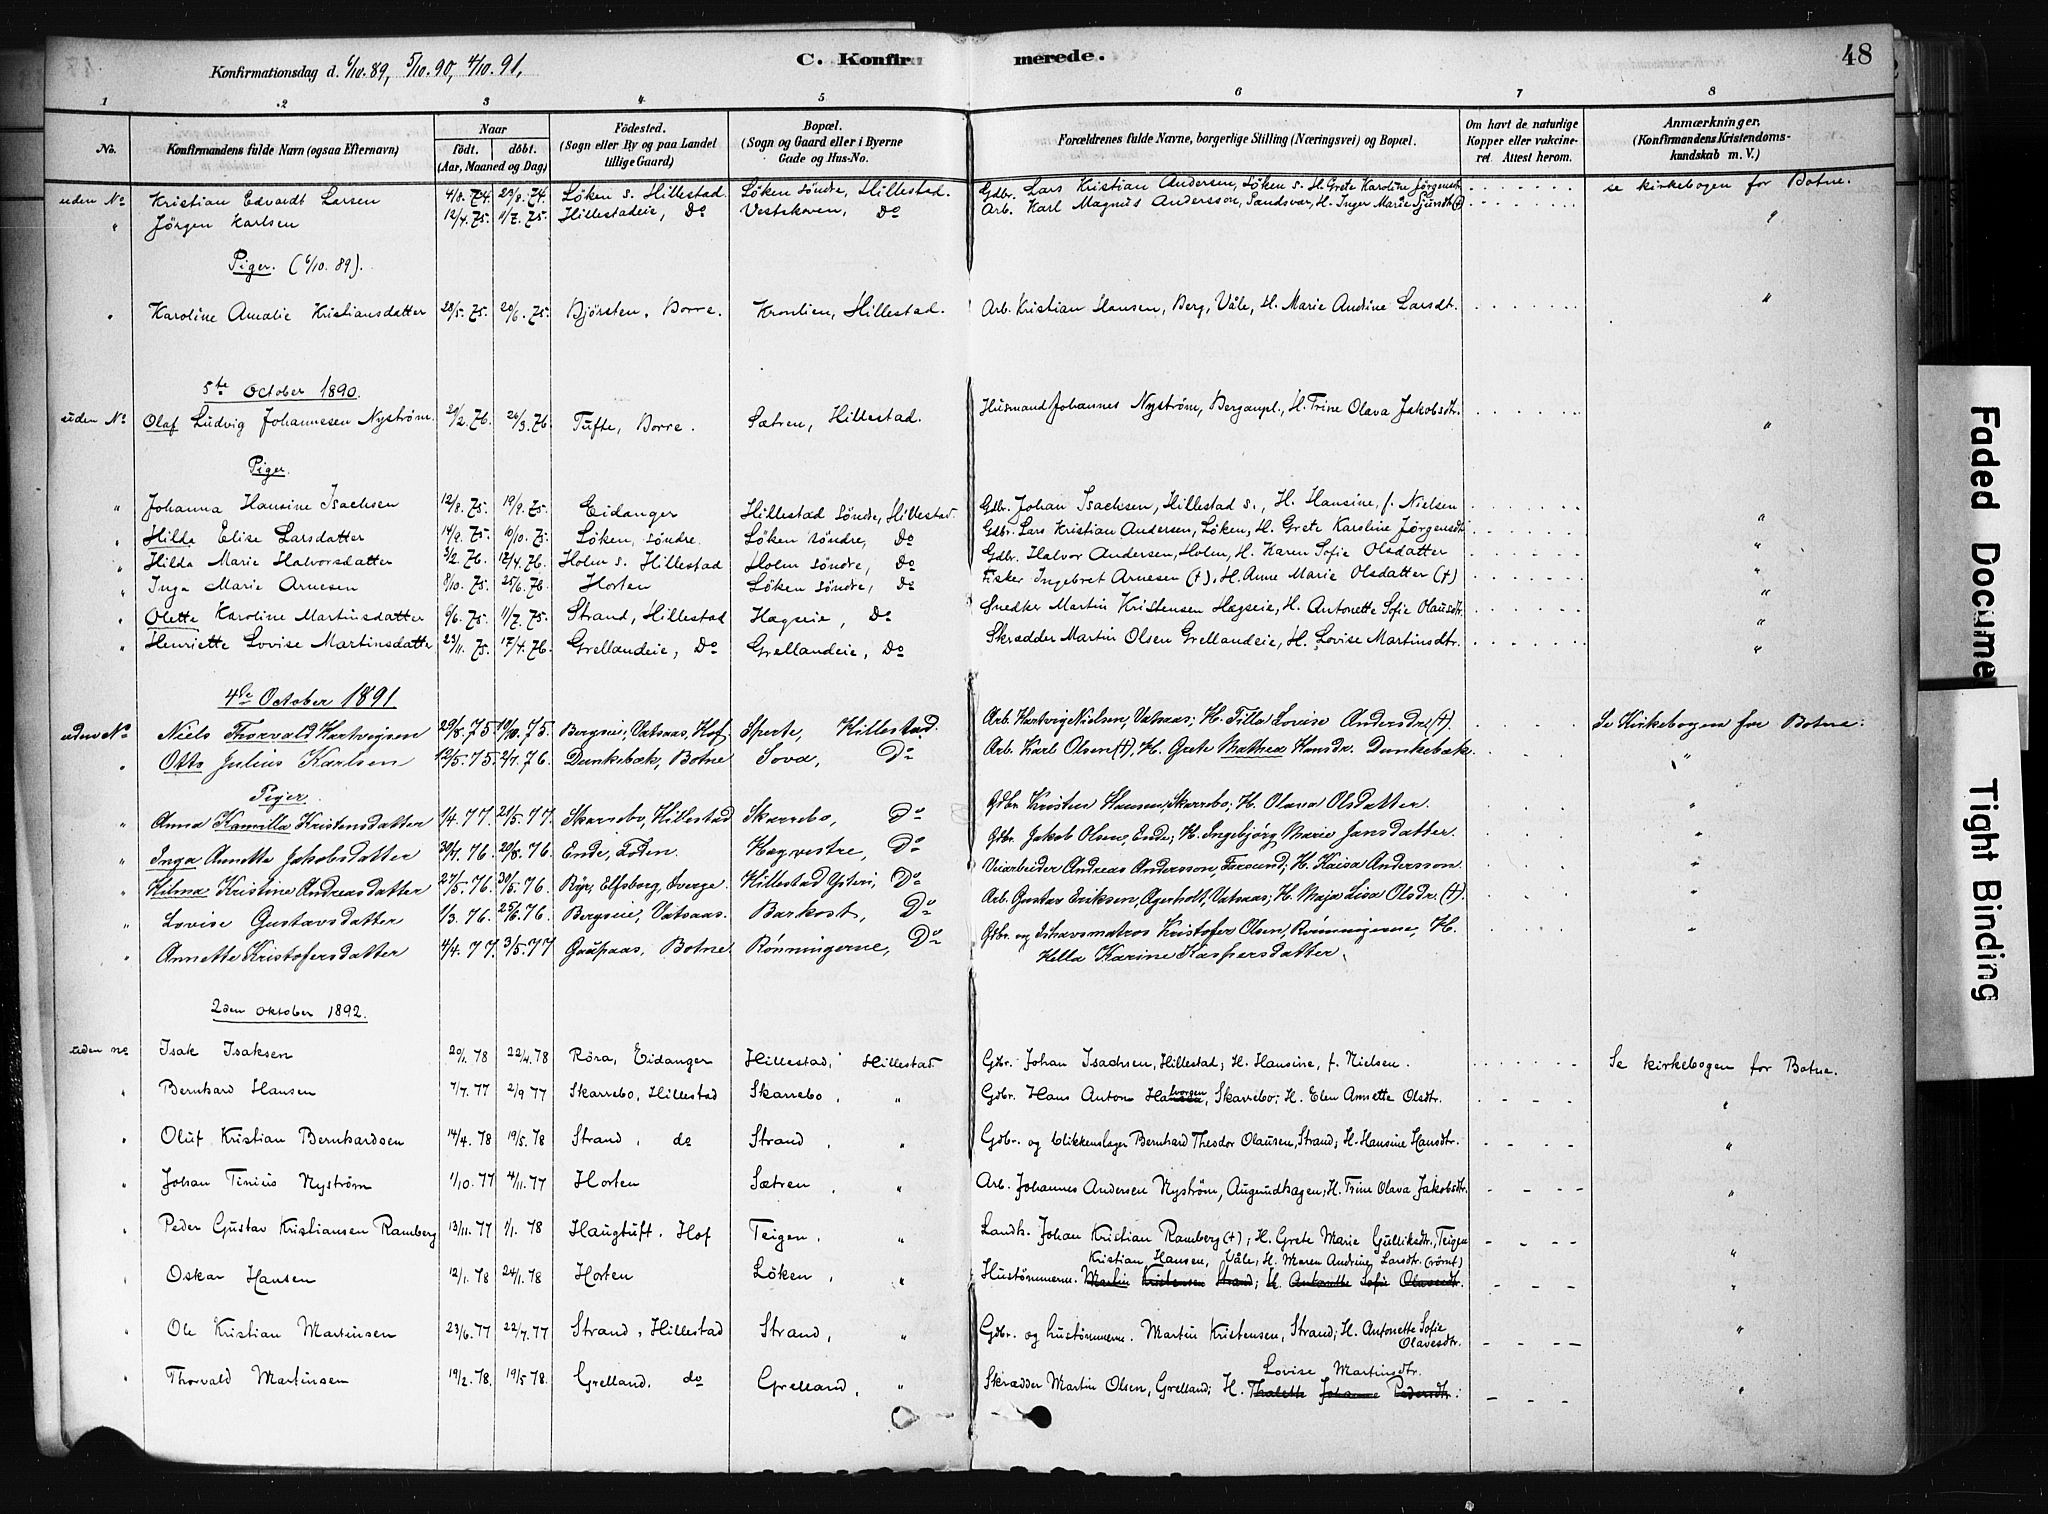 Konfirmationsdag d. 6/10. 89, 5/10. 90, 4/10. 91,
C. Konfirmerede.
48
1 2 3 4 5 6 7 8
No.
Konfirmandens fulde Navn (ogsaa Efternavn)
Naar
født. døbt.
(Aar, Maaned og Dag)
Födested.
(Sogn eller By og paa Landet
tillige Gaard)
Bopæl.
(Sogn og Gaard eller i Byerne
Gade og Hus-No.
Forældrenes fulde Navne, borgerlige Stilling (Næringsvei) og Bopæl.
Om havt de naturlige
Kopper eller vakcine-
ret. Attest herom.
Anmærkninger,
(Konfirmandens Kristendoms-
kundskab m. V.)
uden No Kristian Edvardt Larsen 4/8. 74. 23/8. 74. Löken s. Hillestad. Löken söndre, Hillestad. Gdbr. Lars Kristian Andersen, Löken s. H. Grete Karoline Jörgensdt. se kirkebogen for Botne.
" Jörgen Karlsen 12/4. 75. 11/7. 75. Hillestadeie, Do Vestskoven, Do Arb. Karl Magnus Andersson, Sandsvær, H. Inger Marie (+)
Piger. (6/10. 89).
" Karoline Amalie Kristiansdatter 28/5. 75. 20/6. 75. Bjørsten, Borre. Kronlien, Hillestad. Arb. Kristian Hansen, Berg, Våle, H. Marie Andrine Larsdt. "
5te October 1890.
uden No Olaf Ludvig Johannesen Nyström. 29/2. 76. 26/3. 76. Tufte, Borre. Sætren, Hillestad. Husmand Johannes Nyström, Berganpl., H. Trine Olava Jakobsdtr. "
Piger.
" Johanna Hansine Isachsen 12/8. 75. 19/9. 75. Eidanger Hillestad Söndre, Hillestad. Gdbr. Johan Isachsen, Hillestad s., H. Hansine, f. Nielsen "
" Hilda Elise Larsdatter 14/9. 75. 10/10. 75. Löken, söndre. Löken söndre, Do Gdbr. Lars Kristian Andersen, Löken, H. Grete Karoline Jørgensdt. "
" Hilda Marie Halvorsdatter 3/2. 76. 17/4. 76. Holm s. Hillestad Holm söndre, Do Gdbr. Halvor Andersen, Holm, H. Karen Sofie Olsdatter "
" Inga Marie Arnesen 8/10. 75. 25/6. 76. Horten Löken söndre, Do Fisker Ingebret Arnesen (+), H. Anne Marie Olsdatter (+) "
" Olette Karoline Martinsdatter 9/6. 75. 11/7. 75. Strand, Hillestad Hagseie, Do Snedker Martin Kristensen Hagseie, H. Antonette Sofie Olausdtr. "
" Henriette Lovise Martinsdatter 23/11. 75. 17/4. 76. Grellandeie, Do Grellandeie, Do Skrædder Martin Olsen Grellandeie, H. Lovise Martinsdtr. "
4de October 1891
uden No Niels Thorvald Hartvigsen 29/8. 75. 10/10. 75. Bergseie, Vatsaas, Hof. Sperte, Hillestad. Arb. Hartvig Nielsen, Vatsaas; H. Tilla Lovise Andersdr. (+). Se Kirkebogen for Botne:
" Otto Julius Karlsen 12/5. 75. 2/7. 76. Dunkebæk, Botne Sova, Do Arb. Karl Olsen (+), H. Grete Mathea Hansdr. Dunkebæk. "
Piger.
" Anna Kamilla Kristensdatter 1/4. 77. 21/5. 77. Skarrebo, Hillestad Skarrebo, Do Gdbr. Kristen Hansen, Skarrebo; H. Olava Olsdatter. "
" Inga Annette Jakobsdatter 30/7. 76. 20/8. 76. Ende, Loden. Hagvestre, Do Gdbr. Jakob Olsen, Ende; H. Ingebjörg Marie Jansdatter. "
" Hilma Kristine Andreasdatter 27/5. 76. 30/5. 76. Ryr, Elfsborg, Sverge. Hillestad Ysteri, Do Veiarbeider Andreas Andersson, Forsund; H. Kaisa Andersson. "
" Lovise Gustavsdatter 1/3. 76. 25/6. 76. Bergseie, Vatsaas. Barkost, Do Arb. Gustav Eriksen, Agerholt, Vatsaas; H. Maja Lisa Olsdr. (+). "
" Annette Kristofersdatter 4/4. 77. 31/5. 77 Gaupaas, Botne Rönningerne, Do Gdbr. og Ishavsmatros Kristofer Olsen, Rönningerne, H.
Hella Karine Kaspersdatter. "
2den Oktober 1892.
uden no Isak Isaksen 20/1. 78 22/4. 78 Röra, Eidanger Hillestad, Hillestad. Gdbr. Johan Isachsen, Hillestad; H. Hansine, f. Nielsen. Se kirkebogen for Botne.
" Bernhard Hansen 7/7. 77 2/9 77 Skarrebo, Hillestad Skarrebo, " Gdbr. Hans Anton Halvorsen, Skarrebo; H. Elen Annette Olsdtr. "
" Oluf Kristian Bernhardsen 14/4. 78 19/5. 78 Strand, do Strand, " Gdbr. og blikkenslager Bernhard Theodor Olausen, Strand; H. Hansine Hansdtr. "
" Johan Tinius Nyström 1/10. 77 4/11. 77 Horten Sætren, " Arb. Johannes Andersen Nyström, Augundhagen; H. Trine Olava Jakobsdtr. "
" Peder Gustav Kristiansen Ramberg 13/11. 77 1/1. 78 Haugtuft. Hof Teigen, " Landh. Johan Kristian Ramberg (+); H. Grete Marie Gulliksdtr., Teigen "
Kristian Hansen, Våle, H. Maren Andrine Larsdtr (römt)
" Oskar Hansen 12/1. 78 24/1. 78 Horten Löken, " Hustömmerm. Martin Kristensen Strand; H. Antonette Sofie Olavesdtr. "
" Ole Kristian Martinsen 23/6. 77 22/7. 77 Strand, Hillestad Strand, " Gdbr. og hustömmerm. Martin Kristensen, Strand; H. Antonette Sofie
Olavesdtr. "
Lovise Martinsdtr.
" Thorvald Martinsen 19/2. 78. 19/5 78. Grelland, do Grelland, " Skrædder Martin Olsen, Grelland; H. Thalette Johanne Pedersdtr. "
Faded Docume
Tight Binding